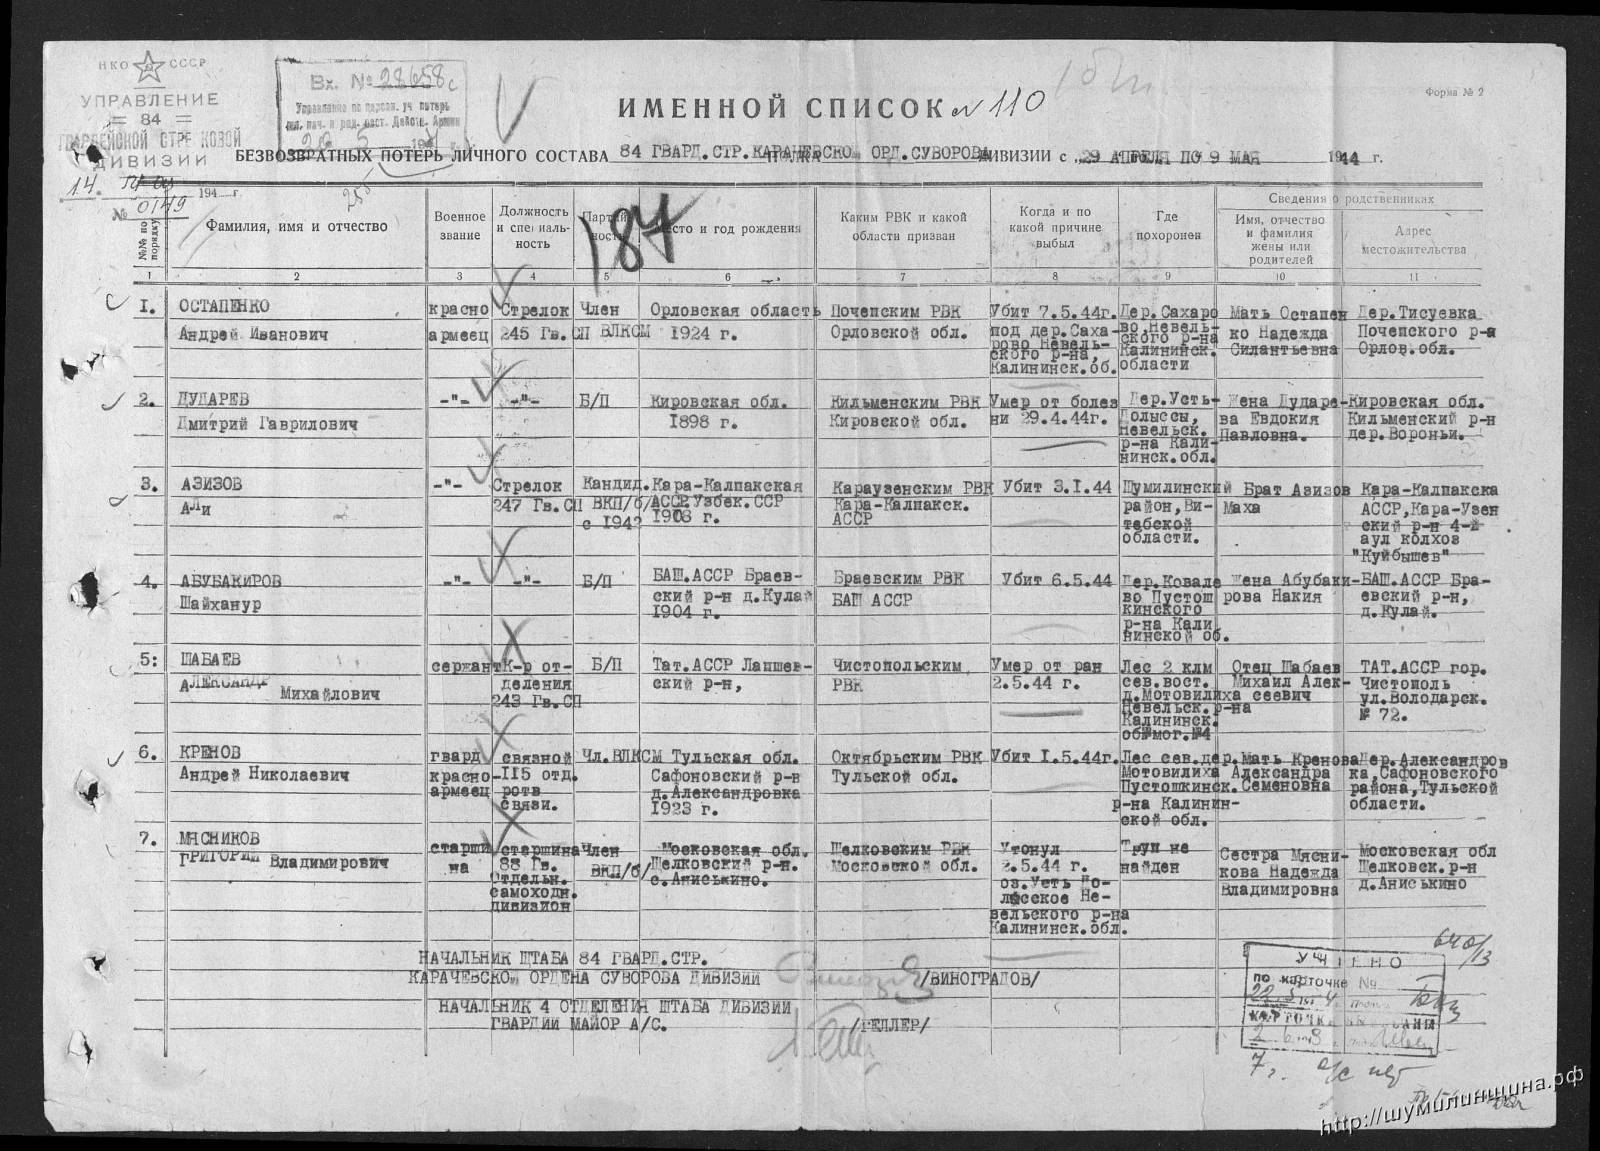 НКО СССР
УПРАВЛЕНИЕ
= 84 =
ГВАРДЕЙСКОЙ СТРЕЛКОВОЙ
ДИВИЗИИ
14.
194 г.
№ 0149
Вх. № 28658с
Управление по персон. уч. потерь
194 г.
Форма № 2
ИМЕННОЙ СПИСОК № 110
БЕЗВОЗВРАТНЫХ ПОТЕРЬ ЛИЧНОГО СОСТАВА 84 ГВАРД.СТР.КАРАЧЕВСКОЙ ОРД.СУВОРОВА ДИВИЗИИ с 29 АПРЕЛЯ ПО 9 МАЯ 1944 г.
187
№№ по порядку
Фамилия, имя и отчество
Военное звание
Должность и специальность
Партийность
Место и год рождения
Каким РВК и какой области призван
Когда и по какой причине выбыл
Где похоронен
Сведения о родственниках
Имя, отчество и фамилия жены или родителей
Адрес местожительства
1 2 3 4 5 6 7 8 9 10 11
1. ОСТАПЕНКО красно Стрелок Член Орловская область Почепским РВК Убит 7.5.44г. Дер.Сахаро Мать Остапен Дер.Тисуевка
Андрей Иванович армеец 245 Гв.СП ВЛКСМ 1924 г. Орловской обл. под дер.Саха- во,Невель- ко Надежда Почепского р-а
рово Невель- ского р-на Силантьевна Орлов.обл.
ского р-на, Калининск.
Калининск.об. области
2. ДУДАРЕВ -"- -"- Б/П Кировская обл. Кильменским РВК Умер от болез Дер.Усть- Жена Дударе- Кировская обл.
Дмитрий Гаврилович 1898 г. Кировской обл. ни 29.4.44г. Долыссы, ва Евдокия Кильменский р-н
Невельск. Павловна. дер.Вороньи.
р-на Кали-
нинск.обл.
3. АЗИЗОВ -"- Стрелок Кандид. Кара-Калпакская Караузенским РВК Убит 3.1.44 Шумилинский Брат Азизов Кара-Калпакска
Али 247 Гв.СП ВКП/б/ АССР Узбек.ССР Кара-Калпакск. район,Ви- Маха АССР,Кара-Узен
с 1942 1908 г. АССР тебской ский р-н 4-й
области. аул колхоз
"Куйбышев"
4. АБУБАКИРОВ -"- -"- Б/П БАШ.АССР Браев- Браевским РВК Убит 6.5.44 Дер.Ковале Жена Абубаки- БАШ.АССР Бра-
Шайханур ский р-н д.Кулай БАШ АССР во Пустош рова Накия евский р-н,
1904 г. кинского д.Кулай.
р-на Кали
нинской об.
5: ШАБАЕВ сержант К-р от- Б/П Тат.АССР Лаишев- Чистопольским Умер от ран Лес 2 клм Отец Шабаев ТАТ.АССР гор.
АЛЕКСАНДР Михайлович деления ский р-н, РВК 2.5.44 г. сев.вост. Михаил Алек- Чистополь
243 Гв.СП д.Мотовилиха сеевич ул.Володарск.
Невельск.р-на № 72.
Калининск.
об мог.№4
6. КРЕНОВ гвард связной Чл.ВЛКСМ Тульская обл. Октябрьским РВК Убит 1.5.44г. Лес сев.дер. Мать Кренова Дер.Александров
Андрей Николаевич красно- 115 отд. Сафоновский р-н Тульской обл. Мотовилиха Александра ка,Сафоновского
армеец ротв д.Александровка Пустошкинск. Семеновна района,Тульской
связи. 1923 г. р-на Калинин- области.
ской обл.
7. МЯСНИКОВ старши старшина Член Московская обл. Щелковским РВК Утонул Труп не Сестра Мясни- Московская обл
ГРИГОРИЙ Владимирович на 88 Гв. ВКП/б/ Щелковский р-н. Московской обл. 2.5.44 г. найден кова Надежда Щелковск.р-н
Отдельн. с.Аниськино. оз.Усть До- Владимировна д.Аниськино
самоходн. лысское Не-
дивизион вельского р-на
Калининск.обл.
НАЧАЛЬНИК ШТАБА 84 ГВАРД.СТР.
КАРАЧЕВСКОЙ ОРДЕНА СУВОРОВА ДИВИЗИИ /ВИНОГРАДОВ/
НАЧАЛЬНИК 4 ОТДЕЛЕНИЯ ШТАБА ДИВИЗИИ
ГВАРДИИ МАЙОР А/С. /ГЕЛЛЕР/
640/13
УЧТЕНО
по карточке №
7г.
http://шумилинщина.рф